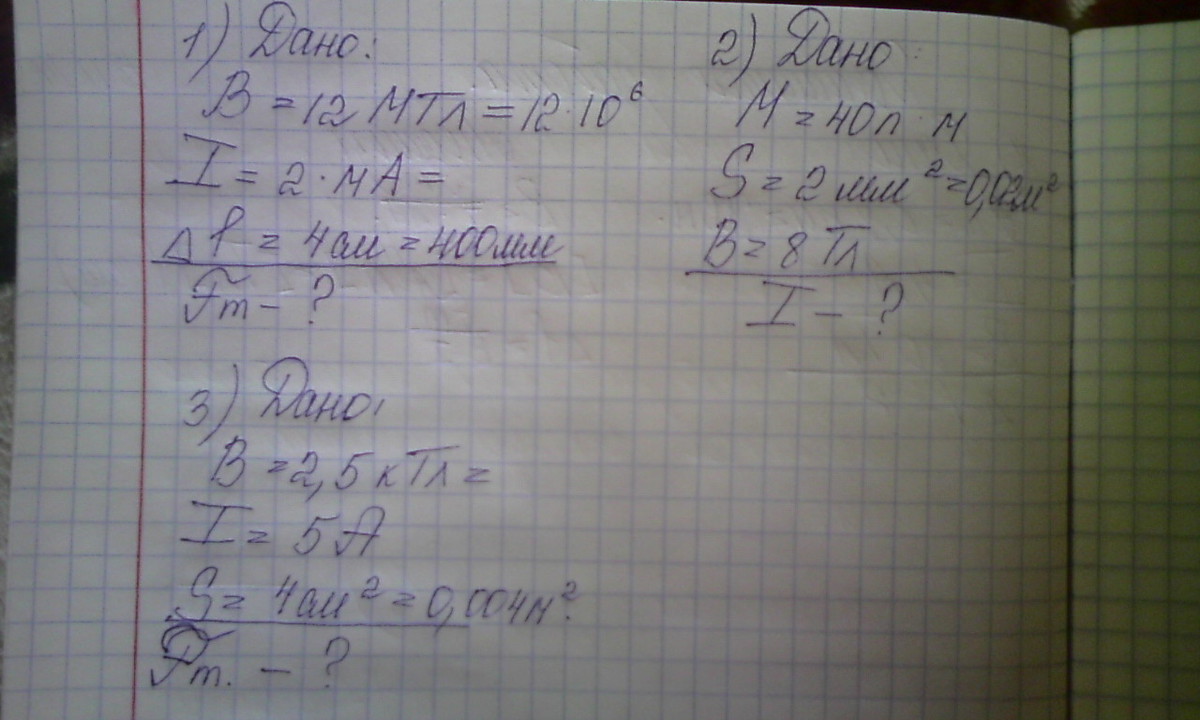 1) Дано:
B = 12 МТл = 12·10⁶
I = 2·мА =
Δl = 4см = 400мм
Fm - ?
2) Дано:
M = 40л м
S = 2мм² = 0,02м²
B = 8 Тл
I - ?
3) Дано:
B = 2,5 кТл =
I = 5А
S = 4см² = 0,004м²
m. - ?